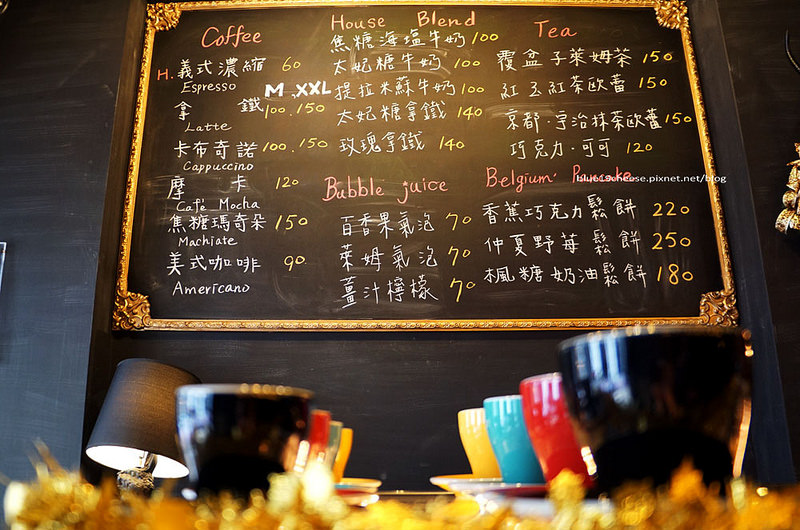 Coffee
H. 義式濃縮 60
Espresso
M XXL
拿 鐵 100.150
Latte
卡布奇諾 100.150
Cappuccino
摩 卡 120
Café Mocha
焦糖瑪奇朵 150
Machiate
美式咖啡 90
Americano
House Blend
焦糖海塩牛奶 100
太妃糖牛奶 100
提拉米蘇牛奶 100
太妃糖拿鐵 140
玫瑰拿鐵 140
Bubble juice
百香果氣泡 70
萊姆氣泡 70
薑汁檸檬 70
Tea
覆盆子萊姆茶 150
紅玉紅茶歐蕾 150
京都·宇治抹茶歐蕾 150
巧克力·可可 120
Belgium Pancake
香蕉巧克力鬆餅 220
仲夏野莓鬆餅 250
楓糖奶油鬆餅 180